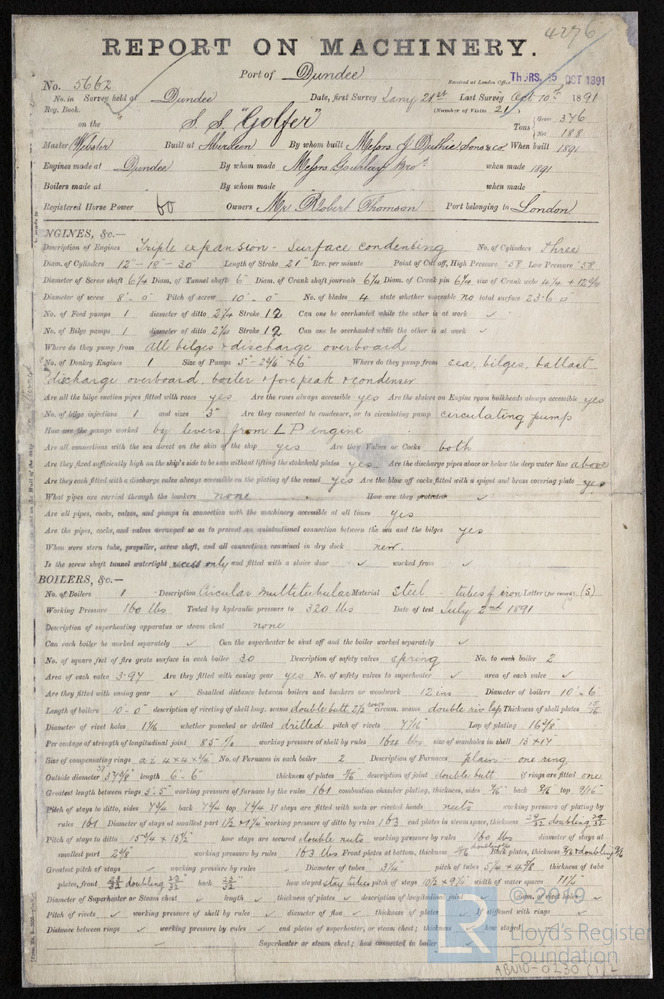 4276
REPORT ON MACHINERY.
Port of Dundee
Received at London Office THURS. 15 OCT 1891
No. 5662
No. in Survey held at Dundee Date, first Survey Jany 21st Last Survey Oct 10th 1891
Reg. Book. (Number of Visits 21)
on the S.S. "Golfer" Tons Gross 376 Net 188
Master Webster Built at Aberdeen By whom built Messrs J. Duthie Sons & Co When built 1891
Engines made at Dundee By whom made Messrs Gourlay Bros when made 1891
Boilers made at By whom made when made
Registered Horse Power 60 Owners Mr Robert Thomson Port belonging to London
NGINES, &c.—
Description of Engines Triple expansion - Surface condensing No. of Cylinders three
Diam. of Cylinders 12" - 18" - 30" Length of Stroke 21" Rev. per minute Point of Cut off, High Pressure .58 Low Pressure .58
Diameter of Screw shaft 6 1/4 Diam. of Tunnel shaft 6" Diam. of Crank shaft journals 6 1/4 Diam. of Crank pin 6 1/4 size of Crank webs
Diameter of screw 8'. 0" Pitch of screw 10'. 0" No. of blades 4 state whether moveable no total surface 23.6
No. of Feed pumps 1 diameter of ditto 2 1/4 Stroke 12 Can one be overhauled while the other is at work ✓
No. of Bilge pumps 1 diameter of ditto 2 1/4 Stroke 12 Can one be overhauled while the other is at work ✓
Where do they pump from all bilges & discharge overboard
No. of Donkey Engines 1 Size of Pumps Where do they pump from sea, bilges, ballast
discharge overboard, boiler & fore peak & condenser
Are all the bilge suction pipes fitted with roses yes Are the roses always accessible yes Are the sluices on Engine room bulkheads always accessible yes
No. of bilge injections 1 and sizes 3" Are they connected to condenser, or to circulating pump circulating pump
How are the pumps worked by levers from LP engine
Are all connections with the sea direct on the skin of the ship yes Are they Valves or Cocks both
Are they fixed sufficiently high on the ship's side to be seen without lifting the stokehold plates yes Are the discharge pipes above or below the deep water line above
Are they each fitted with a discharge valve always accessible on the plating of the vessel yes Are the blow off cocks fitted with a spigot and brass covering plate yes
What pipes are carried through the bunkers none How are they protected ✓
Are all pipes, cocks, valves, and pumps in connection with the machinery accessible at all times yes
Are the pipes, cocks, and valves arranged so as to prevent an unintentional connection between the sea and the bilges yes
When were stern tube, propeller, screw shaft, and all connections examined in dry dock new.
Is the screw shaft tunnel watertight recess only and fitted with a sluice door ✓ worked from ✓
BOILERS, &c.—
No. of Boilers 1 Description Circular Multitubular Material steel - tubes of iron Letter (for record) (S)
Working Pressure 160 lbs Tested by hydraulic pressure to 320 lbs Date of test July 2nd 1891
Description of superheating apparatus or steam chest none
Can each boiler be worked separately ✓ Can the superheater be shut off and the boiler worked separately ✓
No. of square feet of fire grate surface in each boiler 30 Description of safety valves spring No. to each boiler 2
Area of each valve 3.97 Are they fitted with easing gear yes No. of safety valves to superheater ✓ area of each valve ✓
Are they fitted with easing gear ✓ Smallest distance between boilers and bunkers or woodwork 12 ins Diameter of boilers 10'. 6"
Length of boilers 10'. 0" description of riveting of shell long. seams double butt circum. seams double riv lap Thickness of shell plates
Diameter of rivet holes whether punched or drilled drilled pitch of rivets Lap of plating
Per centage of strength of longitudinal joint 85 % working pressure of shell by rules 160 lbs size of manholes in shell 13 x 17
Size of compensating rings No. of Furnaces in each boiler 2 Description of Furnaces plain - one ring
Outside diameter length 6'. 6" thickness of plates description of joint double butt if rings are fitted one
Greatest length between rings working pressure of furnace by the rules 161 combustion chamber plating, thickness, sides back top 9/16
Pitch of stays to ditto, sides 7 3/4 back 7 3/4 top 7 3/4 If stays are fitted with nuts or riveted heads nuts working pressure of plating by
rules 161 Diameter of stays at smallest part working pressure of ditto by rules 163 end plates in steam space, thickness doubling
Pitch of stays to ditto how stays are secured double nuts working pressure by rules 160 lbs diameter of stays at
smallest part working pressure by rules 163 lbs Front plates at bottom, thickness Back plates, thickness doubling
Greatest pitch of stays ✓ working pressure by rules ✓ Diameter of tubes 3 1/4 pitch of tubes thickness of tube
plates, front doubling back how stayed stay tubes pitch of stays width of water spaces
Diameter of Superheater or Steam chest ✓ length ✓ thickness of plates ✓ description of longitudinal joint ✓ diam. of rivet holes ✓
Pitch of rivets ✓ working pressure of shell by rules ✓ diameter of flue ✓ thickness of plates ✓ If stiffened with rings ✓
Distance between rings ✓ working pressure by rules ✓ end plates of superheater, or steam chest; thickness ✓ how stayed
Superheater or steam chest; how connected to boiler ✓
© 2019
LR
Lloyd's Register
Foundation
ABU10-0230 (1)L